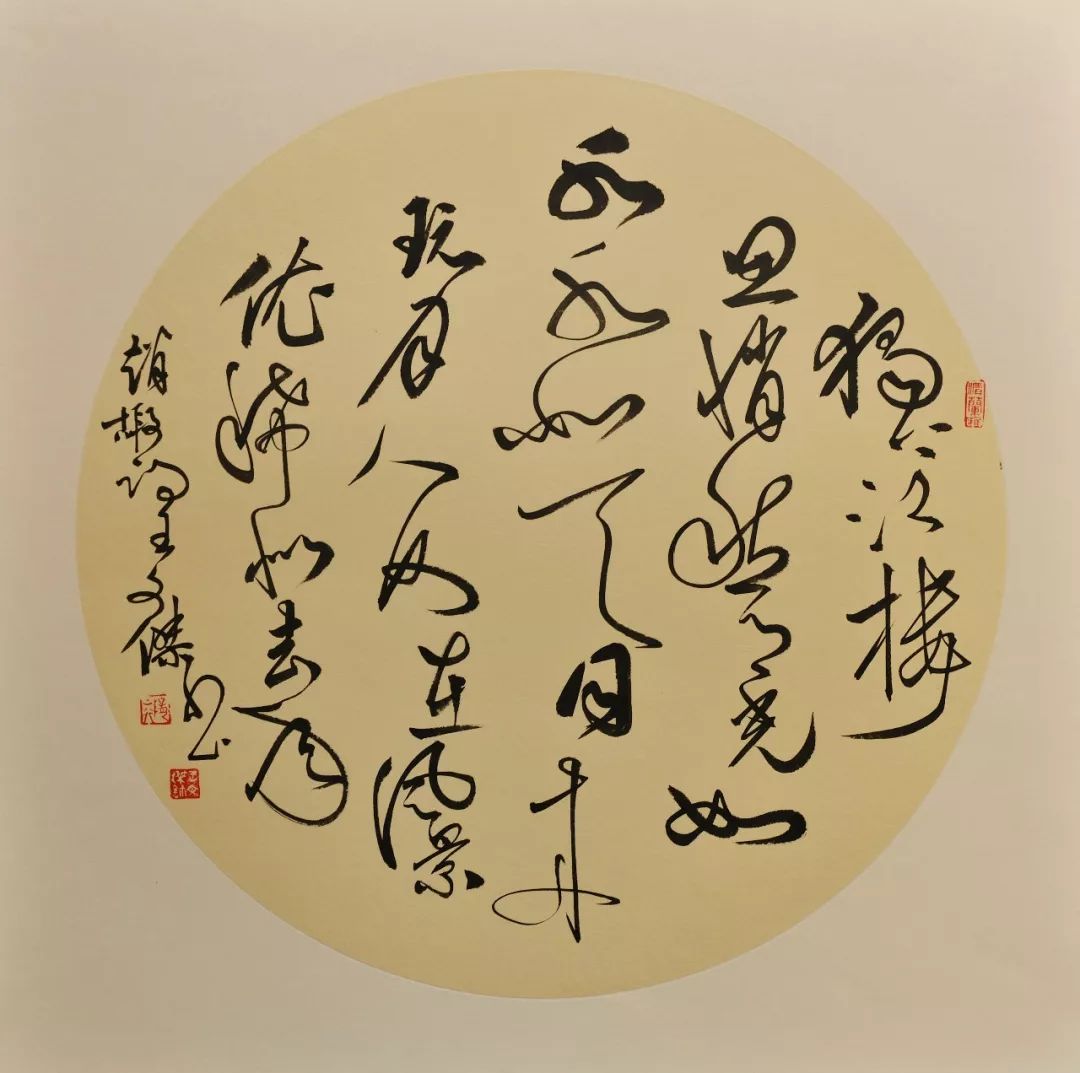 獨上江樓
思悄然月光如
水水如天同來
玩月人何在風景
依稀似去年
趙嘏詩王文傑書